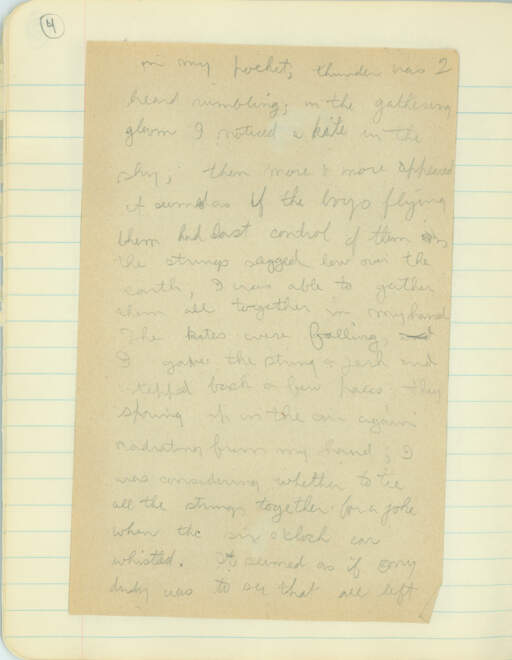 4
in my pocket, thunder was 2
heard rumbling; in the gathering
gloom I noticed a kite in the
sky; then more & more appeared
it seemed as if the boys flying
them had lost control of them
the strings sagged low over the
earth, I was able to gather
them all together in my hand
The kites were falling,
I gave the string a jerk and
stepped back a few paces they
sprung up in the air again
radiating from my hand; I
was considering whether to tie
all the strings together for a joke
when the six o'clock car
whistled. It seemed as if my
duty was to see that all left